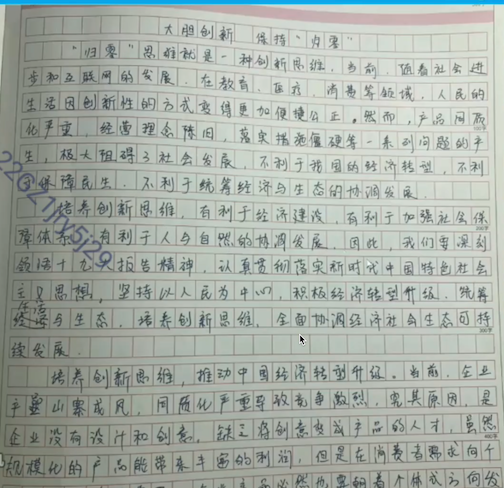 大胆创新 保持“归零”
“归零”思维就是一种创新思维。当前，随着社会进
步和互联网的发展，在教育、医疗、消费等领域，人民的
生活因创新性的方式变得更加便捷公正。然而，产品同质
化严重，经营理念陈旧，落实措施僵硬等一系列问题的产
生，极大阻碍了社会发展，不利于我国的经济转型，不利
于保障民生，不利于统筹经济与生态的协调发展。
培养创新思维，有利于经济建设，有利于加强社会保
障体系，有利于人与自然的协调发展。因此，我们要深刻
领悟十九大报告精神，认真贯彻落实新时代中国特色社会
主义思想。坚持以人民为中心，积极经济转型升级，统筹
经济与生态，培养创新思维，全面协调经济社会生态可持
续发展。
培养创新思维，推动中国经济转型升级。当前，企业
产品山寨成风，同质化严重导致竞争激烈，究其原因，是
企业没有设计和创意，缺乏将创意变成产品的人才，虽然
规模化的产品能带来丰富的利润，但是在消费者需求向个